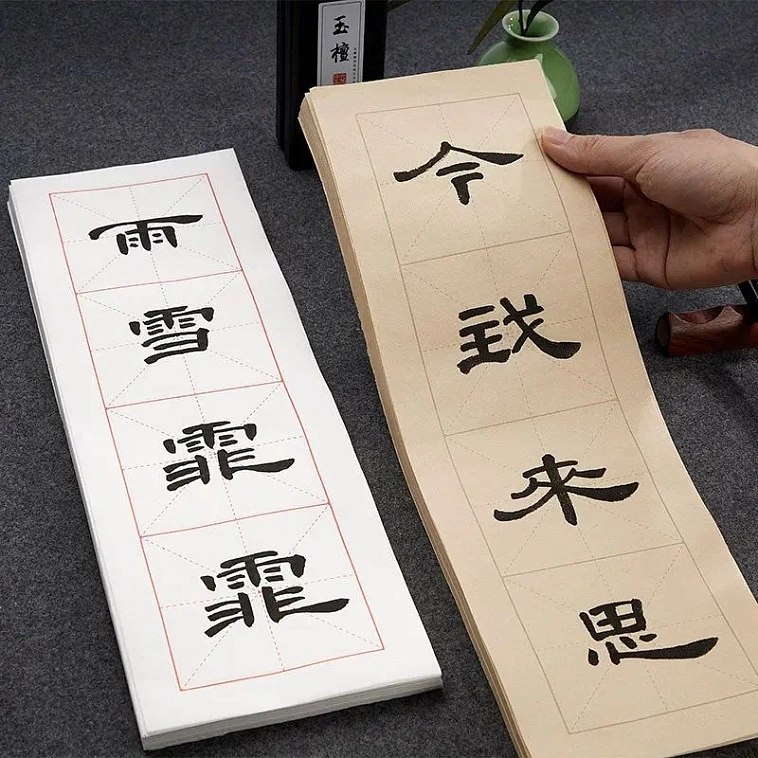 玉檀
今我來思
雨雪霏霏